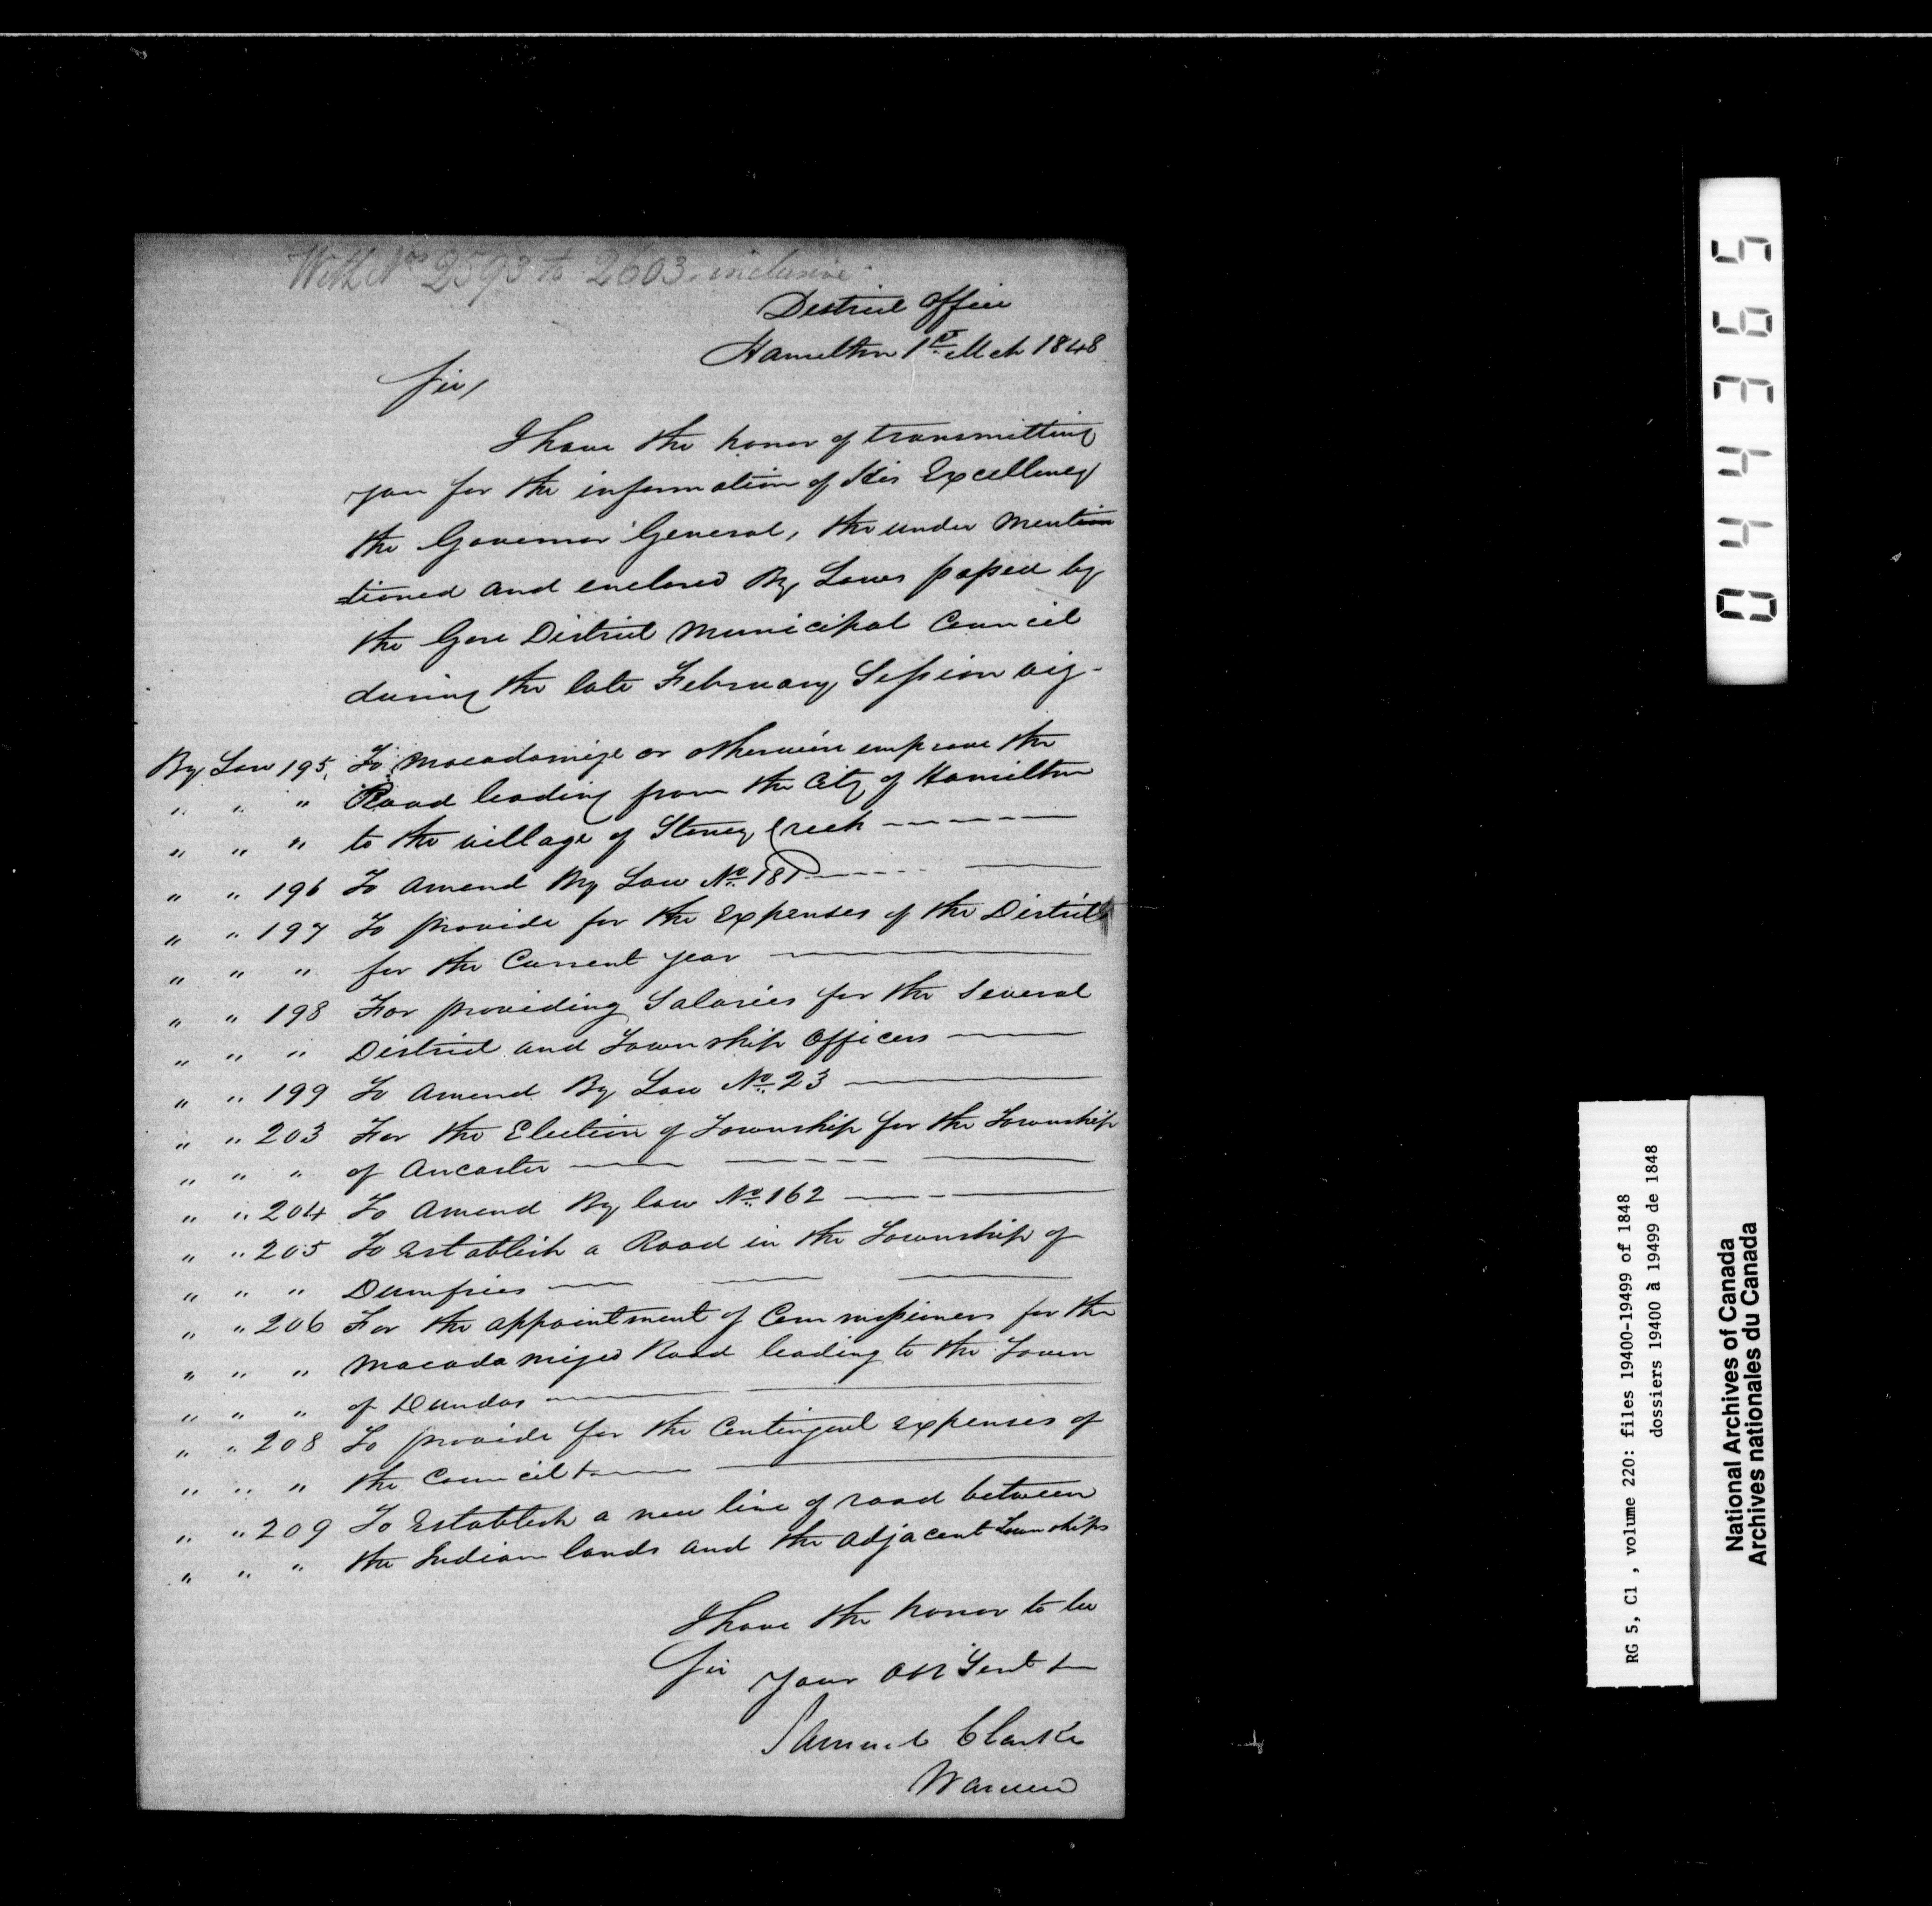 With Nos 2593 to 2603. inclusive.
District Office
Hamilton 1st Mch 1848
Sir,
I have the honor of transmitting
you for the information of His Excellency
the Governor General, the under mention
tioned and enclosed By Laws passed by
the Gore District Municipal Council
during the late February Session viz-
By Law 195. To Macadamize or otherwise improve the
" " " Road leading from the City of Hamilton
" " " to the village of Stoney Creek
" " 196 To Amend By Law No. 181
" " 197 To provide for the Expenses of the District
" " " for the Current year
" " 198 For providing Salaries for the Several
" " " District and Township Officers
" " 199 To Amend By Law No. 23
" " 203 For the Election of Township for the Township
" " " of Ancaster
" " 204 To Amend By law No. 162
" " 205 To Establish a Road in the Township of
" " " Dumfries
" " 206 For the appointment of Commissioners for the
" " " Macadamized Road leading to the Town
" " " of Dundas
" " 208 To provide for the Contingent expenses of
" " " the Council
" " 209 To Establish a new line of road between
" " " the Indian lands and the adjacent Townships
I have the honor to be
Sir your Obt Servt
Samuel Clarke
Warden
044365
RG 5, C1 , volume 220: files 19400-19499 of 1848
dossiers 19400 à 19499 de 1848
National Archives of Canada
Archives nationales du Canada